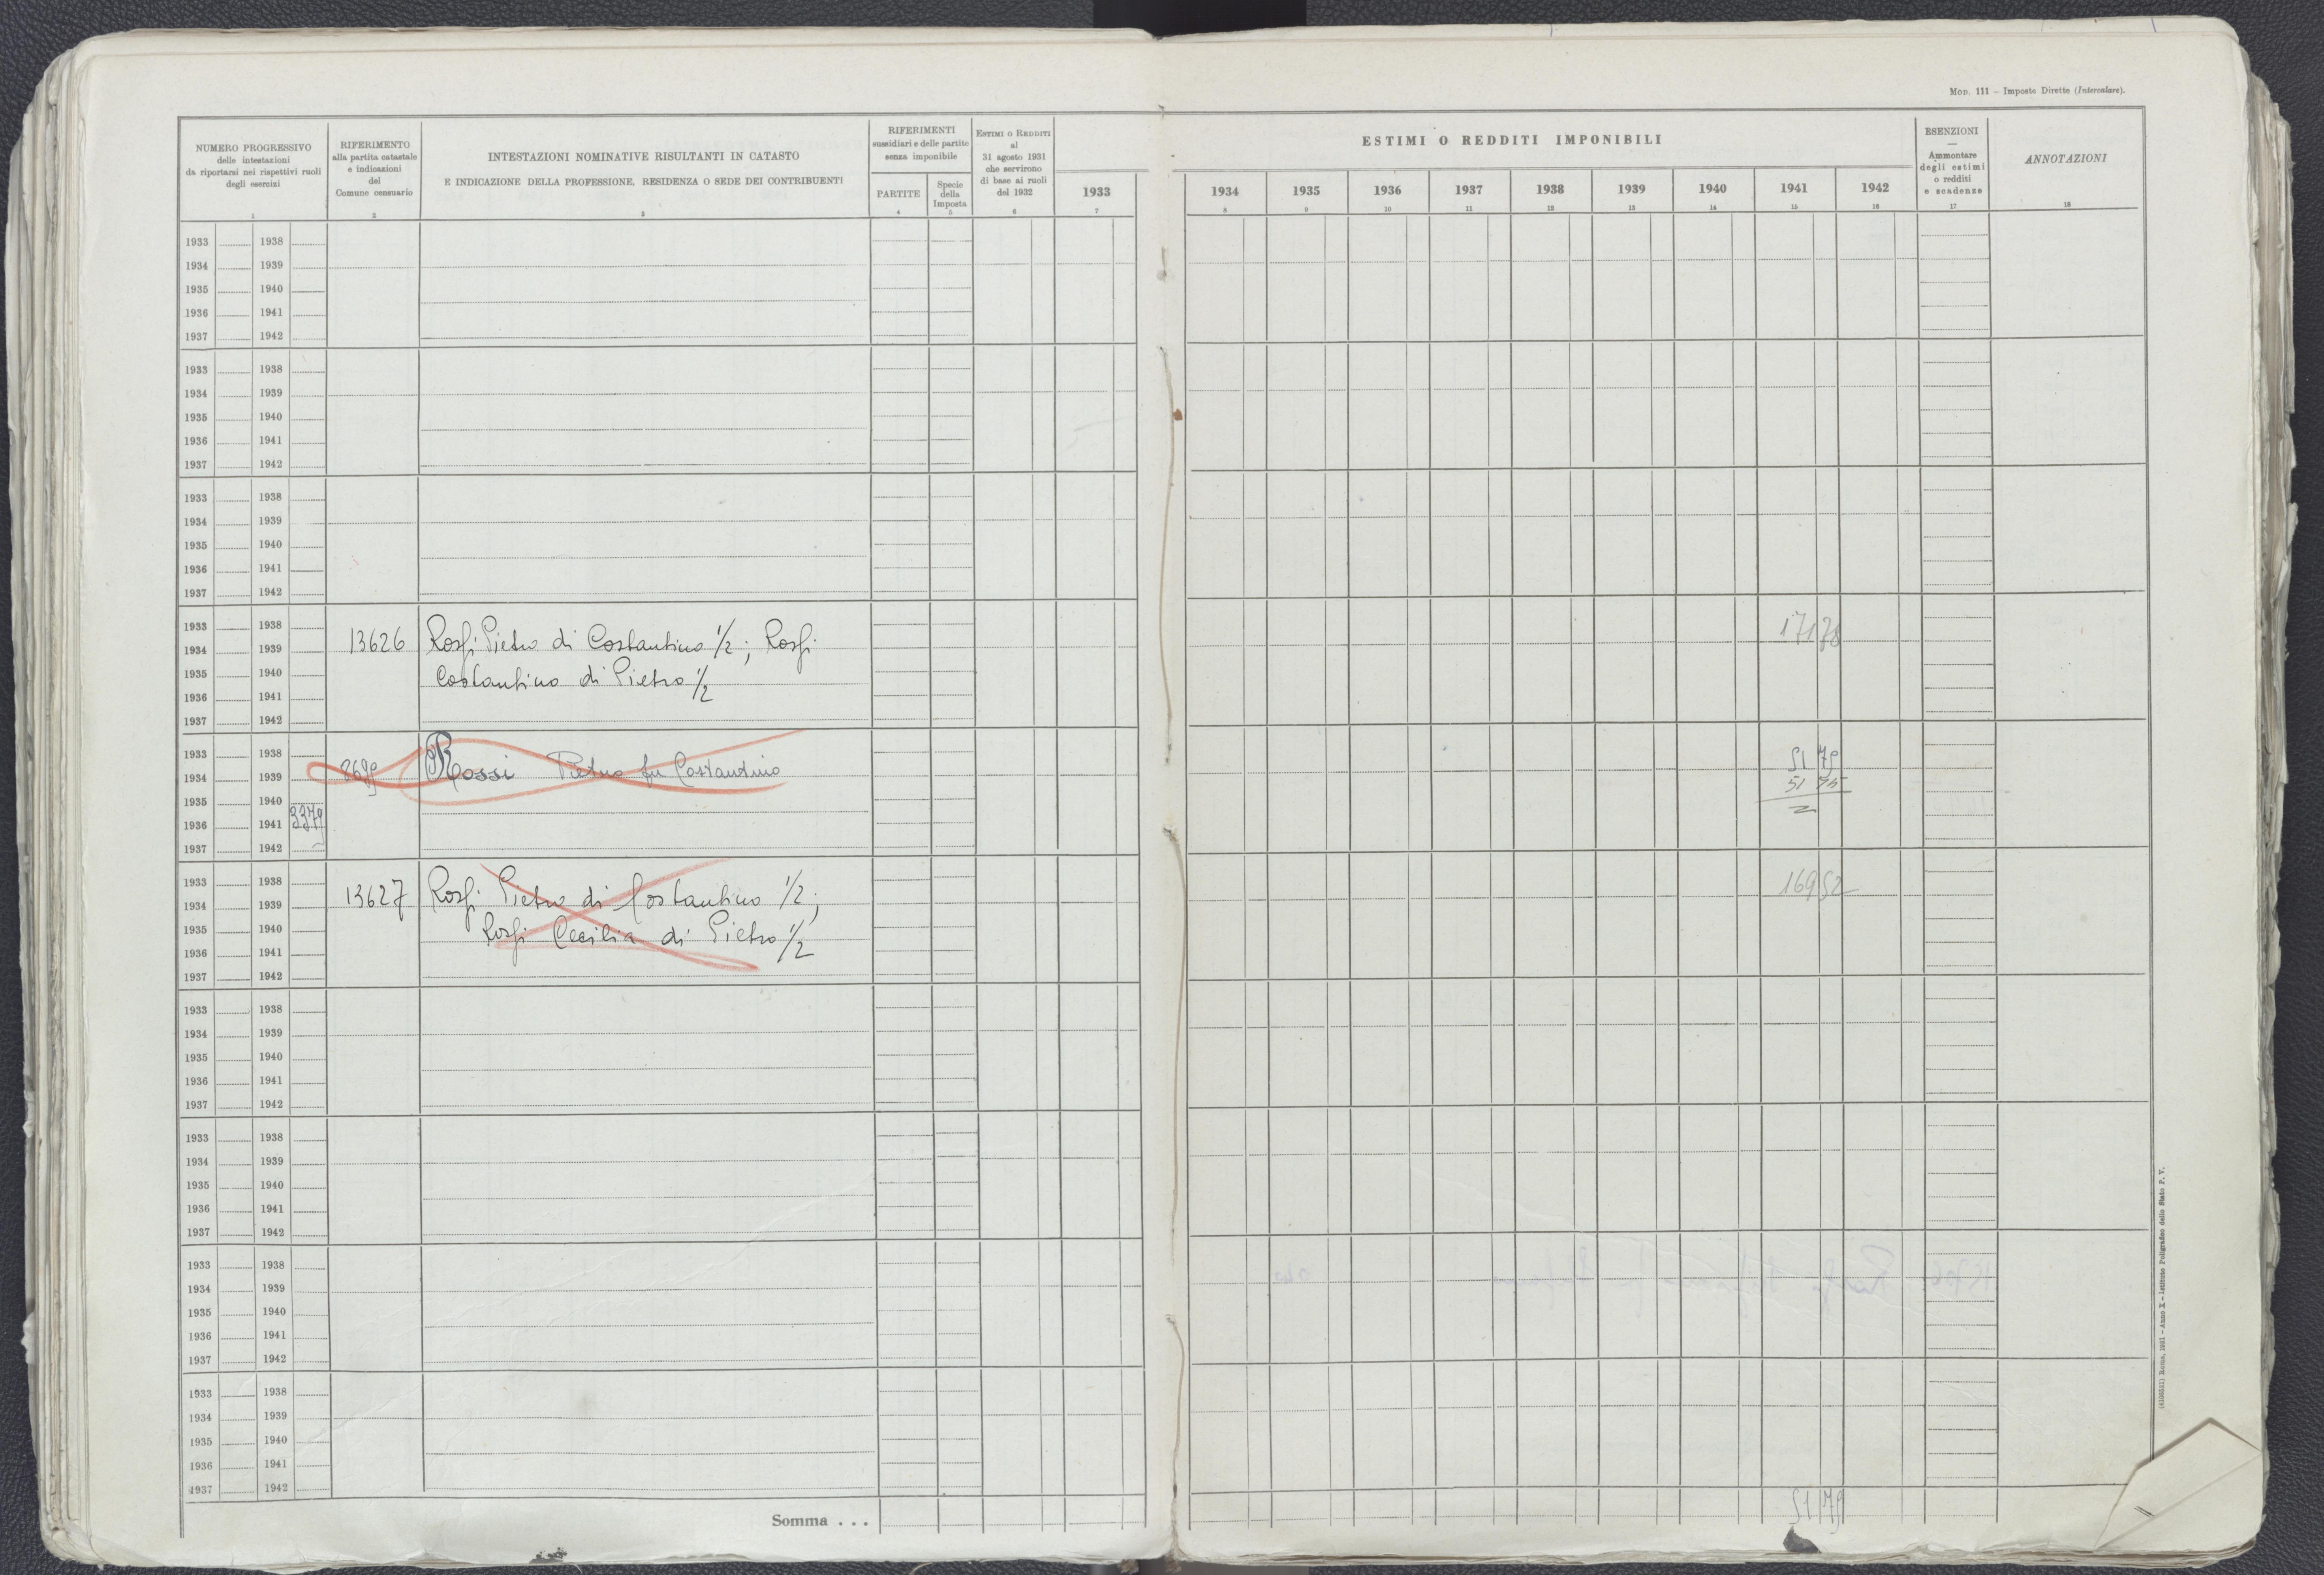 MOD. 111 – Imposte Dirette (Intercalare).
NUMERO PROGRESSIVO
delle intestazioni
da riportarsi nei rispettivi ruoli
degli esercizi
1
RIFERIMENTO
alla partita catastale
e indicazioni
del
Comune censuario
2
INTESTAZIONI NOMINATIVE RISULTANTI IN CATASTO
E INDICAZIONE DELLA PROFESSIONE, RESIDENZA O SEDE DEI CONTRIBUENTI
3
RIFERIMENTI
sussidiari e delle partite
senza imponibile
PARTITE
4
Specie
della
Imposta
5
ESTIMI O REDDITI
al
31 agosto 1931
che servirono
di base ai ruoli
del 1932
6
ESTIMI O REDDITI IMPONIBILI
1933 1934 1935 1936 1937 1938 1939 1940 1941 1942
7 8 9 10 11 12 13 14 15 16
ESENZIONI
—
Ammontare
degli estimi
o redditi
e scadenze
17
ANNOTAZIONI
18
1933 1938
1934 1939
1935 1940
1936 1941
1937 1942
1933 1938
1934 1939
1935 1940
1936 1941
1937 1942
1933 1938
1934 1939
1935 1940
1936 1941
1937 1942
1933 1938
1934 1939 13626 Rossi Pietro di Costantino 1/2; Rossi 171 78
1935 1940 Costantino di Pietro 1/2
1936 1941
1937 1942
1933 1938
1934 1939 8699 Rossi Pietro fu Costantino 51 79
1935 1940 51
1936 1941 3379
1937 1942
1933 1938
1934 1939 13627 Rossi Pietro di Costantino 1/2; 169 52
1935 1940 Rossi Cecilia di Pietro 1/2
1936 1941
1937 1942
1933 1938
1934 1939
1935 1940
1936 1941
1937 1942
1933 1938
1934 1939
1935 1940
1936 1941
1937 1942
1933 1938
1934 1939
1935 1940
1936 1941
1937 1942
1933 1938
1934 1939
1935 1940
1936 1941
1937 1942
Somma . . . 51 79
Roma, 1931 – Anno X – Istituto Poligrafico dello Stato P. V.